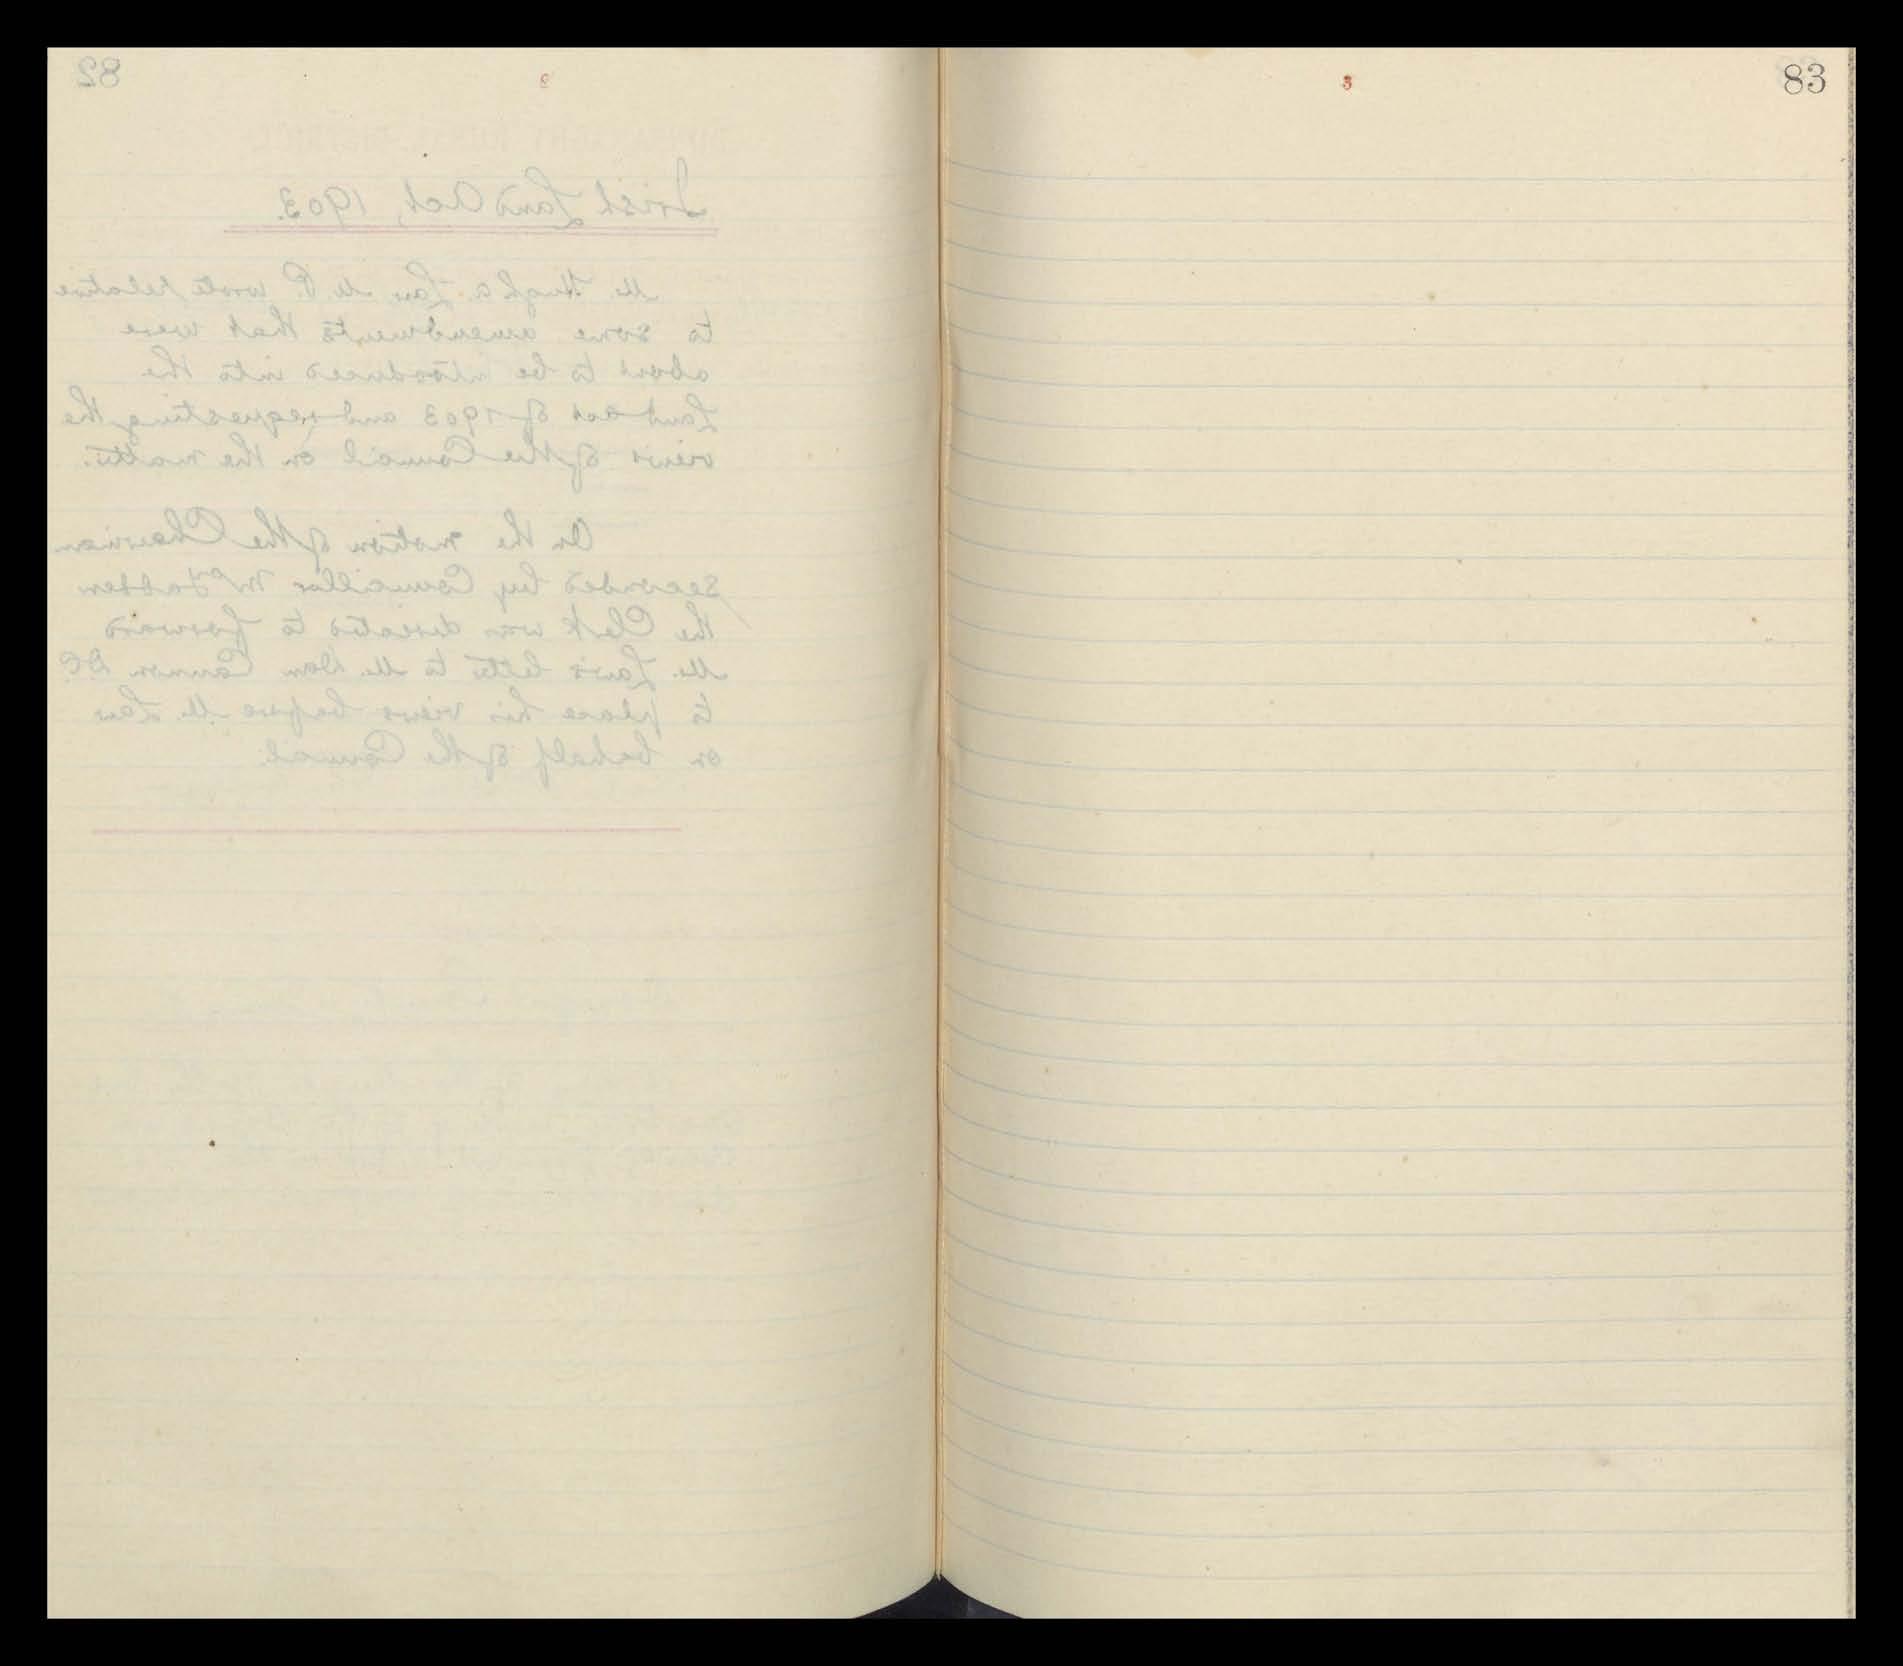 82
DUNFANAGHY RURAL DISTRICT.
Irish Land Act, 1903.
Mr. Hugh A. Law M.P. wrote relative
to some amendments that were
about to be introduced into the
Land Act of 1903 and requesting the
views of the Council on the matter.
On the motion of the Chairman
seconded by Councillor McFadden
the Clerk was directed to forward
Mr. Law's letter to Mr. Dan Cannon D.C.
to place his views before Mr. Law
on behalf of the Council.
83
3